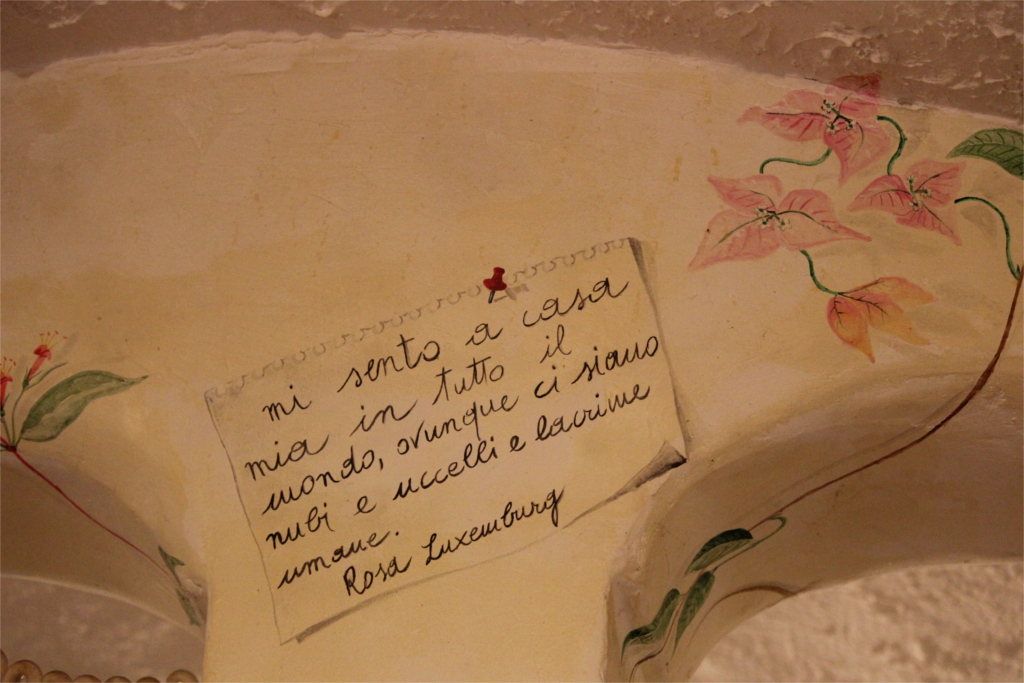 mi sento a casa
mia in tutto il
mondo, ovunque ci siano
nubi e uccelli e lacrime
umane.
Rosa Luxemburg